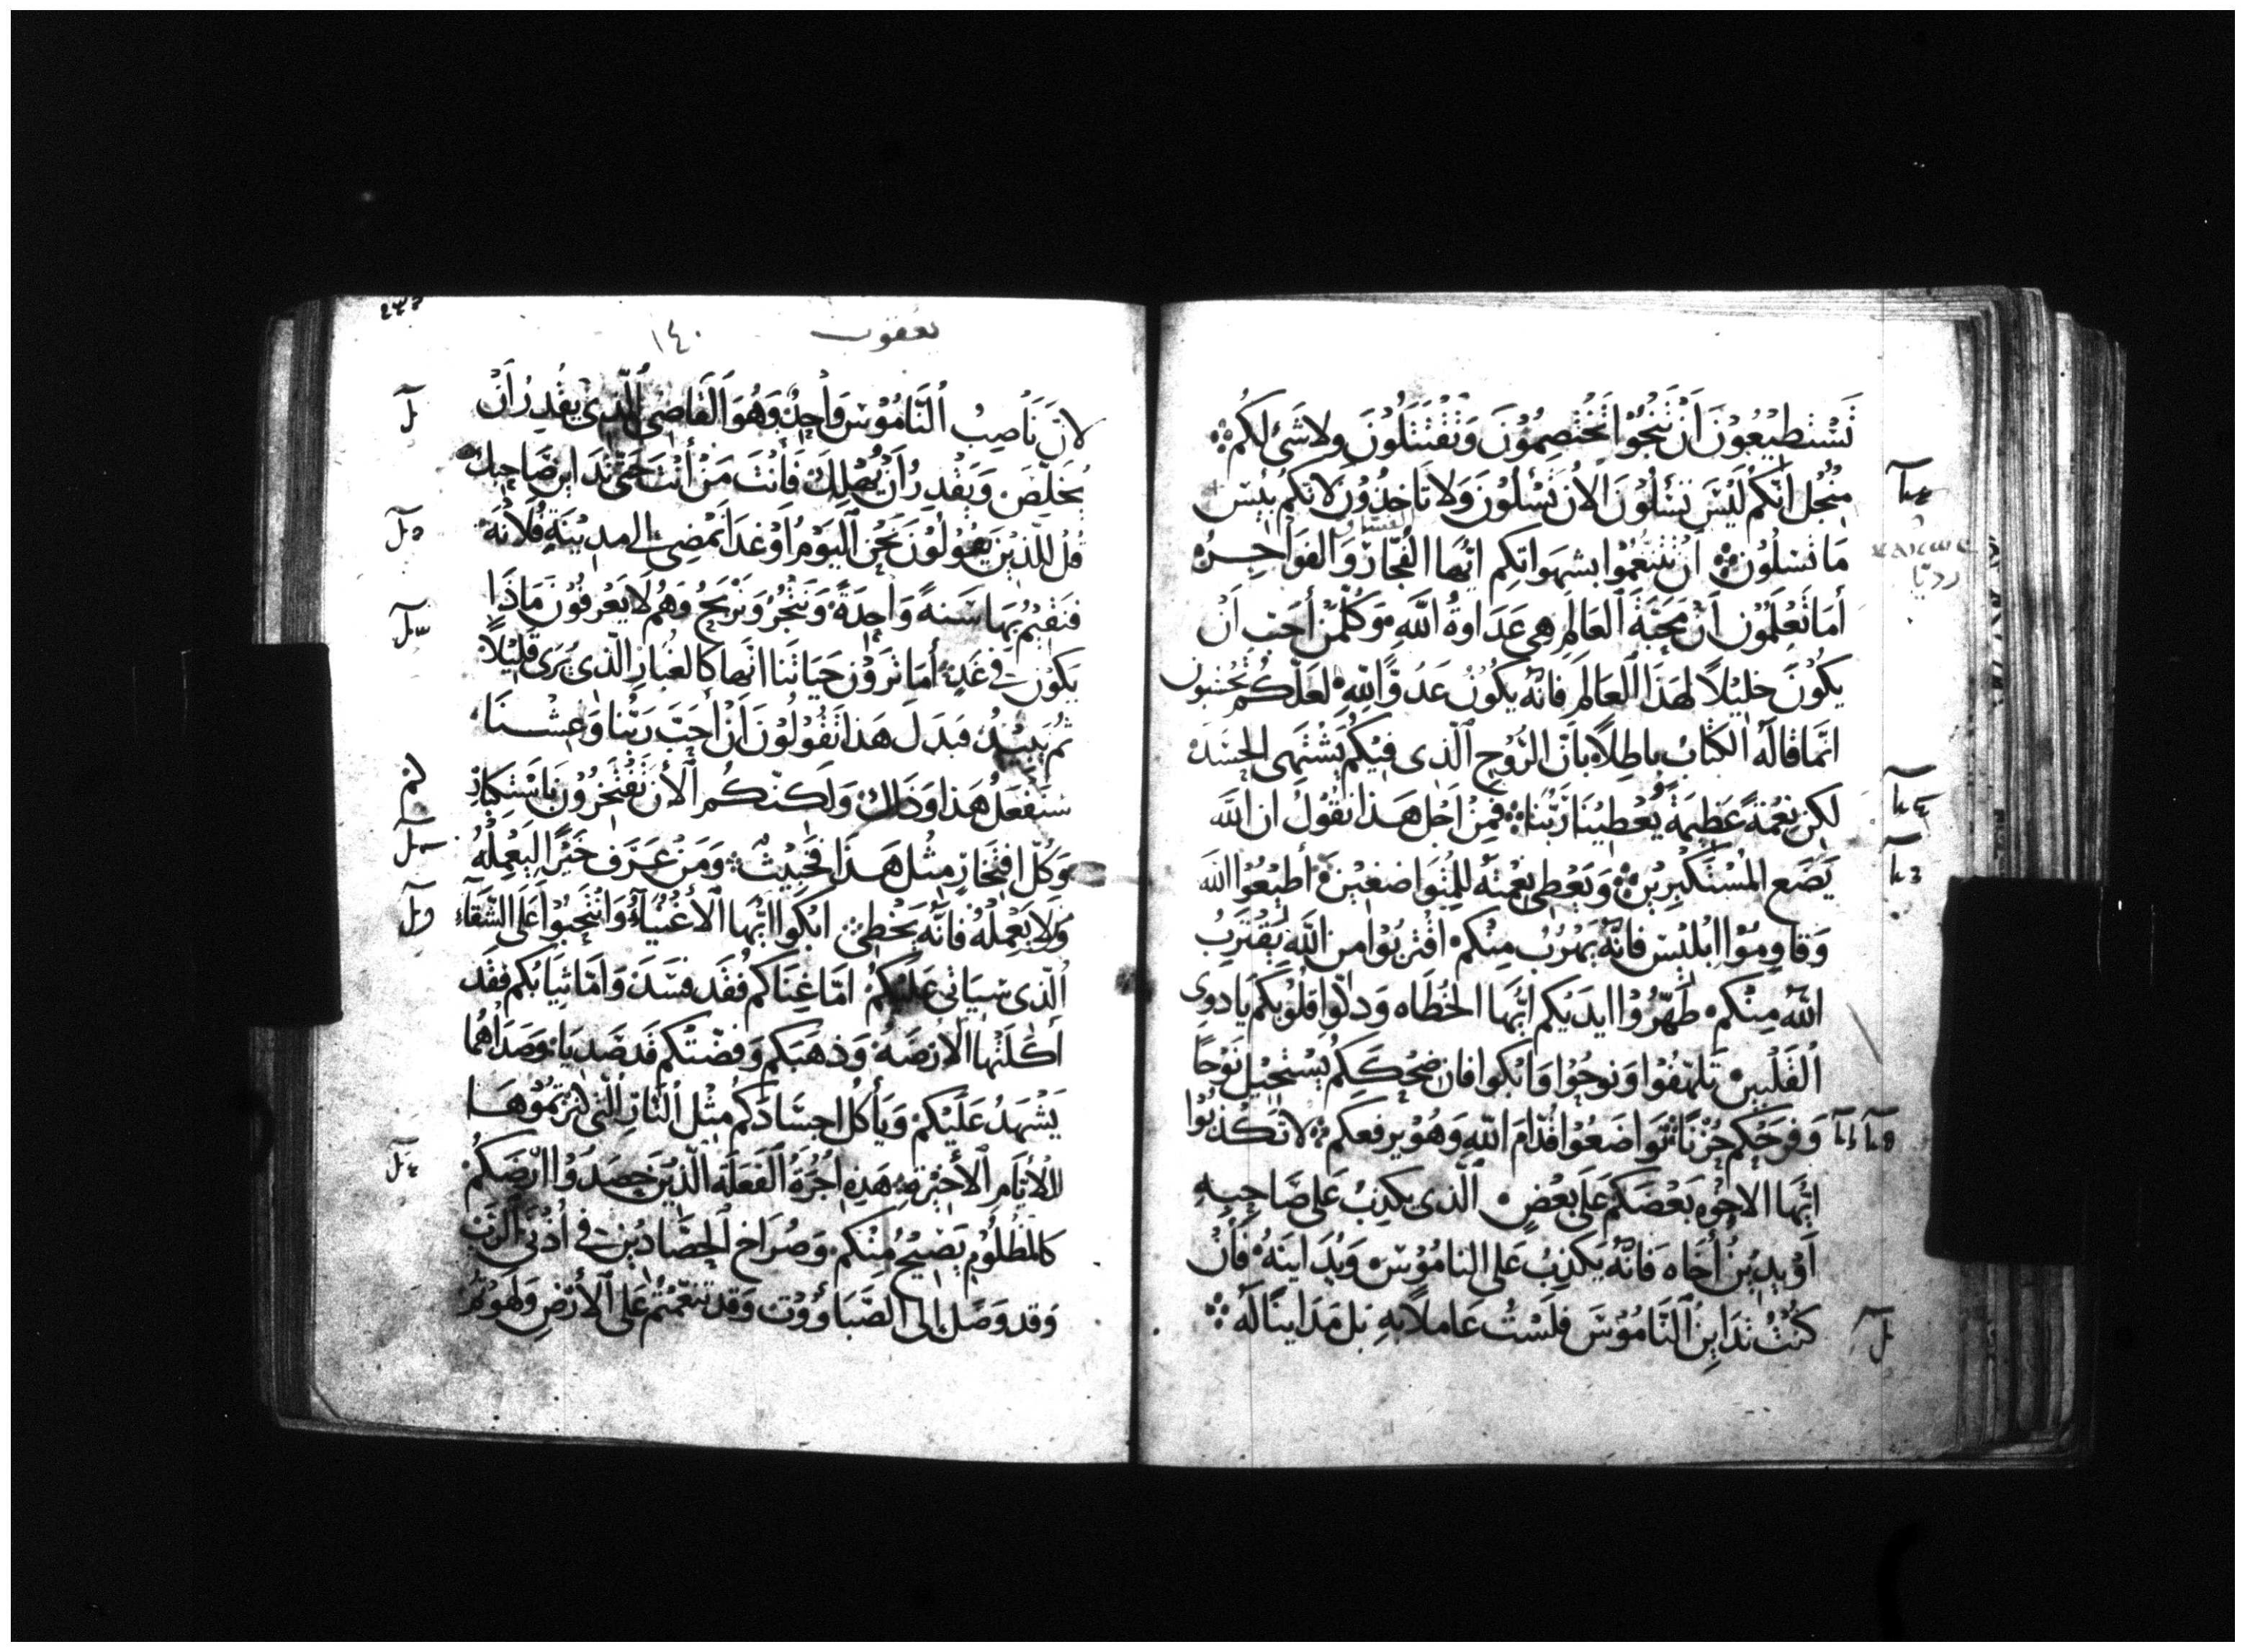 تَسْتَطِيْعُوْنَ اَنْ تَنْجُوْا تَخْتَصِمُوْنَ وَتَقْتَتِلُوْنَ ولا شَىْ لَكُمْ
مِنْ جُل اَنّكُمْ لَيْسَ تَسْلُوْنَ الاْن تَسْلُوْنَ وَلا تَاخذُوْن لانكم بيْس
مَا تَسلُوْن اَنْ تَتَنعَّمُوا بشهوَاتِكم ايّهَا الفُجّار وَالفَوَاجِرُ
أمَا تَعْلَمُوْن اَنْ مَحَبّةَ العَالَمِ هِى عَدَاوةُ اللّهِ وَكُلّمَنْ أحَبّ اَنْ
يكُوْنَ خَلِيْلاً لهَذَا العَالَمِ فَانّه يكُوْنُ عَدُوًّا للّهِ لعَلّكم تحْسَبُون
انّمَا قَالَهُ الكتَابُ باطِلاً باَنّ الرُّوْحِ الّذى فِيْكُمْ يَشْتهى الحَسَدْ
لكِنْ نِعْمَةً عَظِيْمَةً يُعْطِيْنَا رَبُّنا فمِنْ اَجْل هَذا تقُوْلُ ان اللّهَ
يَضَع المُسْتَكْبِرِيْن وَيُعْطِى نِعْمتَهُ لِلمتواضعِيْن أطيْعُوْا اللّهَ
وَقاوِمُوْا ابْليْس فَانّهُ يَهْرُبُ مِنْكم اقْتربُوْا من اللّهِ يَقْتَرِبْ
اللّهُ مِنكم طَهّرُوْا ايديَكم ايّهَا الخُطَاه وَدلّوا قلُوْبكم يَا ذوى
القَلْبين تَلهّفُوْا وَنوحُوْا وَابْكوا فان ضحْكَكم يَسْتحِيْل نَوْحاً
وَفرَحَكم حُزْناً تَوَاضعُوْا قدّامَ اللّهِ وَهُوْ يرفعكم لا تكذبُوْا
ايّهَا الاخوْه بَعْضكم عَلَى بَعْضٍ الّذى يكذبُ عَلى صَاحِبه
اَوْ يدِيْن أخَاه فَانّهُ يَكذبُ عَلى النامُوْس وَيُدَاينهُ فَاِنْ
كُنْتُ تدَاينُ النّامُوْسَ فلَسْتُ عَاملاً بهِ بل مَدَاينا لَهُ
يعقوب ١٤٠
لانّ نَاصِبُ النّامُوْس وَاحِدٌ وَهُوَ القَاضِى الّذى يقْدِرُ اَنْ
يخَلّصَ وَيَقْدِر اَنْ يُهْلِكَ فَانْتَ مَنْ أنْتَ حَتّى تدَاين صَاحِبك
قُل للّذيْنَ يقولوْنَ نحْن اليَوْمُ اَوْ غدَا نَمْضى الى مدِيْنَةٍ فُلانَه
فَنقيْمُ بهَا سَنهً وَاحِدَةً وَنَتْجُرْ وَنَرْبحُ وَهُم لا يَعْرفوْن مَاذَا
يكُوْن فى غَدٍ أمَا تَرَوْن حَيَاتَنا انّها كالغبارِ الّذى يُرَى قَلِيْلاً
ثُم يَبِيْدُ فبَدَلَ هَذا تقُوْلوْنَ اَنْ اَحَبّ رَبّنا وَعِشْنَا
سَنفْعَلُ هَذا وَذَلكَ وَلكنّكم الأن تَفْتَخِرُوْن باسْتكبَارٍ
وَكُلّ افتخَارٍ مثْل هَذَا فخَبيْثٌ وَمَن عَرَف خيْرًا ليَعْمِلْهُ
وَلا يَعْمِلْهُ فانّهُ يَخْطى ابْكوا ايّهَا الأغْنيَآءُ وَانْتحِبُوْا عَلَى الشّقآء
الّذى سَيَاتى عَليْكُمْ امّا غِنَاكم فُقَد فسَدَ وَامّا ثيَابكم فقَد
أكَلَتْهَا الارضَهُ وَذهَبكم وَفِضّتكم قَد صَديَا وَصَدَاهُمَا
يَشْهَدُ عَلَيْكُمْ وَيَأكُل اجسَادَكم مِثْل النّارِ الّتى كنزتموْهَا
للأيّامِ الأخيْرَةِ هَذِهِ اُجْرَةُ الفَعَلَة الّذيْنَ حصَدُوْا ارْضَكُمْ
كالمَظْلُوْمِ يَصيْحُ مِنْكم وَصُرَاخ الحَصّادِيْن فى أذُنَى الرّبّ
وَقد وَصَل الى الصّبَاؤوْت وَقد تنعّمْتُم عَلى الأرْضِ وَلهوْتُمْ